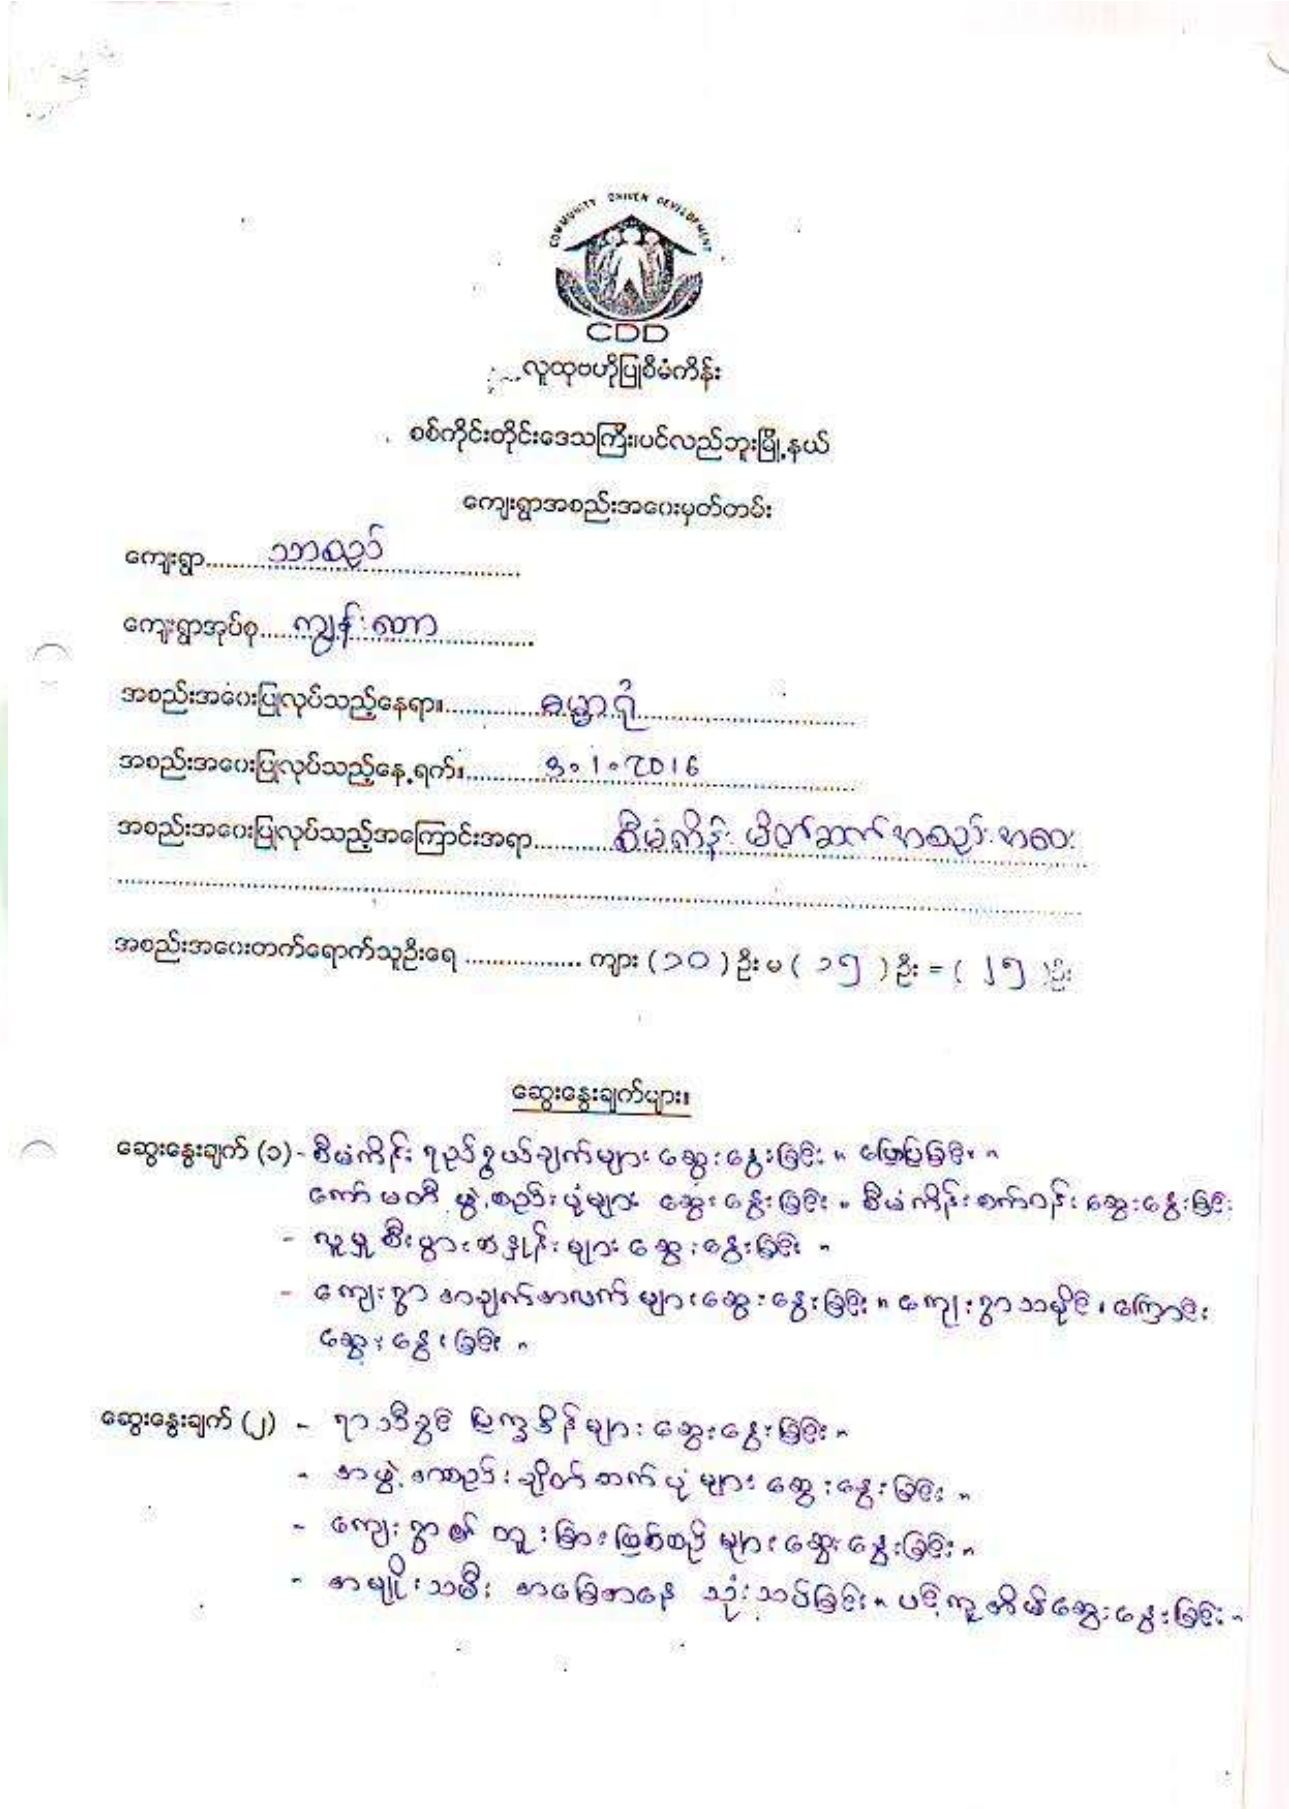 COMMUNITY DRIVEN DEVELOPMENT
CDD
လူထုဗဟိုပြုစီမံကိန်း
စစ်ကိုင်းတိုင်းဒေသကြီး၊ပင်လည်ဘူးမြို့နယ်
ကျေးရွာအစည်းအဝေးမှတ်တမ်း
ကျေးရွာ.......... သာစည်
ကျေးရွာအုပ်စု..... ကျွန်းဏာ
အစည်းအဝေးပြုလုပ်သည့်နေရာ။.............. ဓမ္မာရုံ
အစည်းအဝေးပြုလုပ်သည့်နေ့ရက်။............ 9.1.2016
အစည်းအဝေးပြုလုပ်သည့်အကြောင်းအရာ........... စီမံကိန်း မိတ်ဆက် အစည်းအဝေး
အစည်းအဝေးတက်ရောက်သူဦးရေ ................. ကျား (၁၀) ဦး မ (၁၅) ဦး = (၂၅) ဦး
ဆွေးနွေးချက်များ။
ဆွေးနွေးချက် (၁) - စီမံကိန်း ရည်ရွယ်ချက်များ ဆွေးနွေးခြင်း။ ပြောပြခြင်း။
ကော်မတီ ဖွဲ့စည်းပုံများ ဆွေးနွေးခြင်း။ စီမံကိန်းစက်ဝန်း ဆွေးနွေးခြင်း
- လူမှု စီးပွား များ ဆွေးနွေးခြင်း။
- ကျေးရွာ အချက်အလက် များ ဆွေးနွေးခြင်း။ ကျေးရွာ သမိုင်းကြောင်း
ဆွေးနွေးခြင်း။
ဆွေးနွေးချက် (၂) - ရာသီခွင် ပြက္ခဒိန်များ ဆွေးနွေးခြင်း။
- အဖွဲ့အစည်း ချိတ်ဆက်ပုံ များ ဆွေးနွေးခြင်း။
- ကျေးရွာ၏ ထူးခြားဖြစ်စဉ် များ ဆွေးနွေးခြင်း။
- အမျိုးသမီး အခြေအနေ သုံးသပ်ခြင်း။ ပင့်ကူအိမ်ဆွေးနွေးခြင်း။